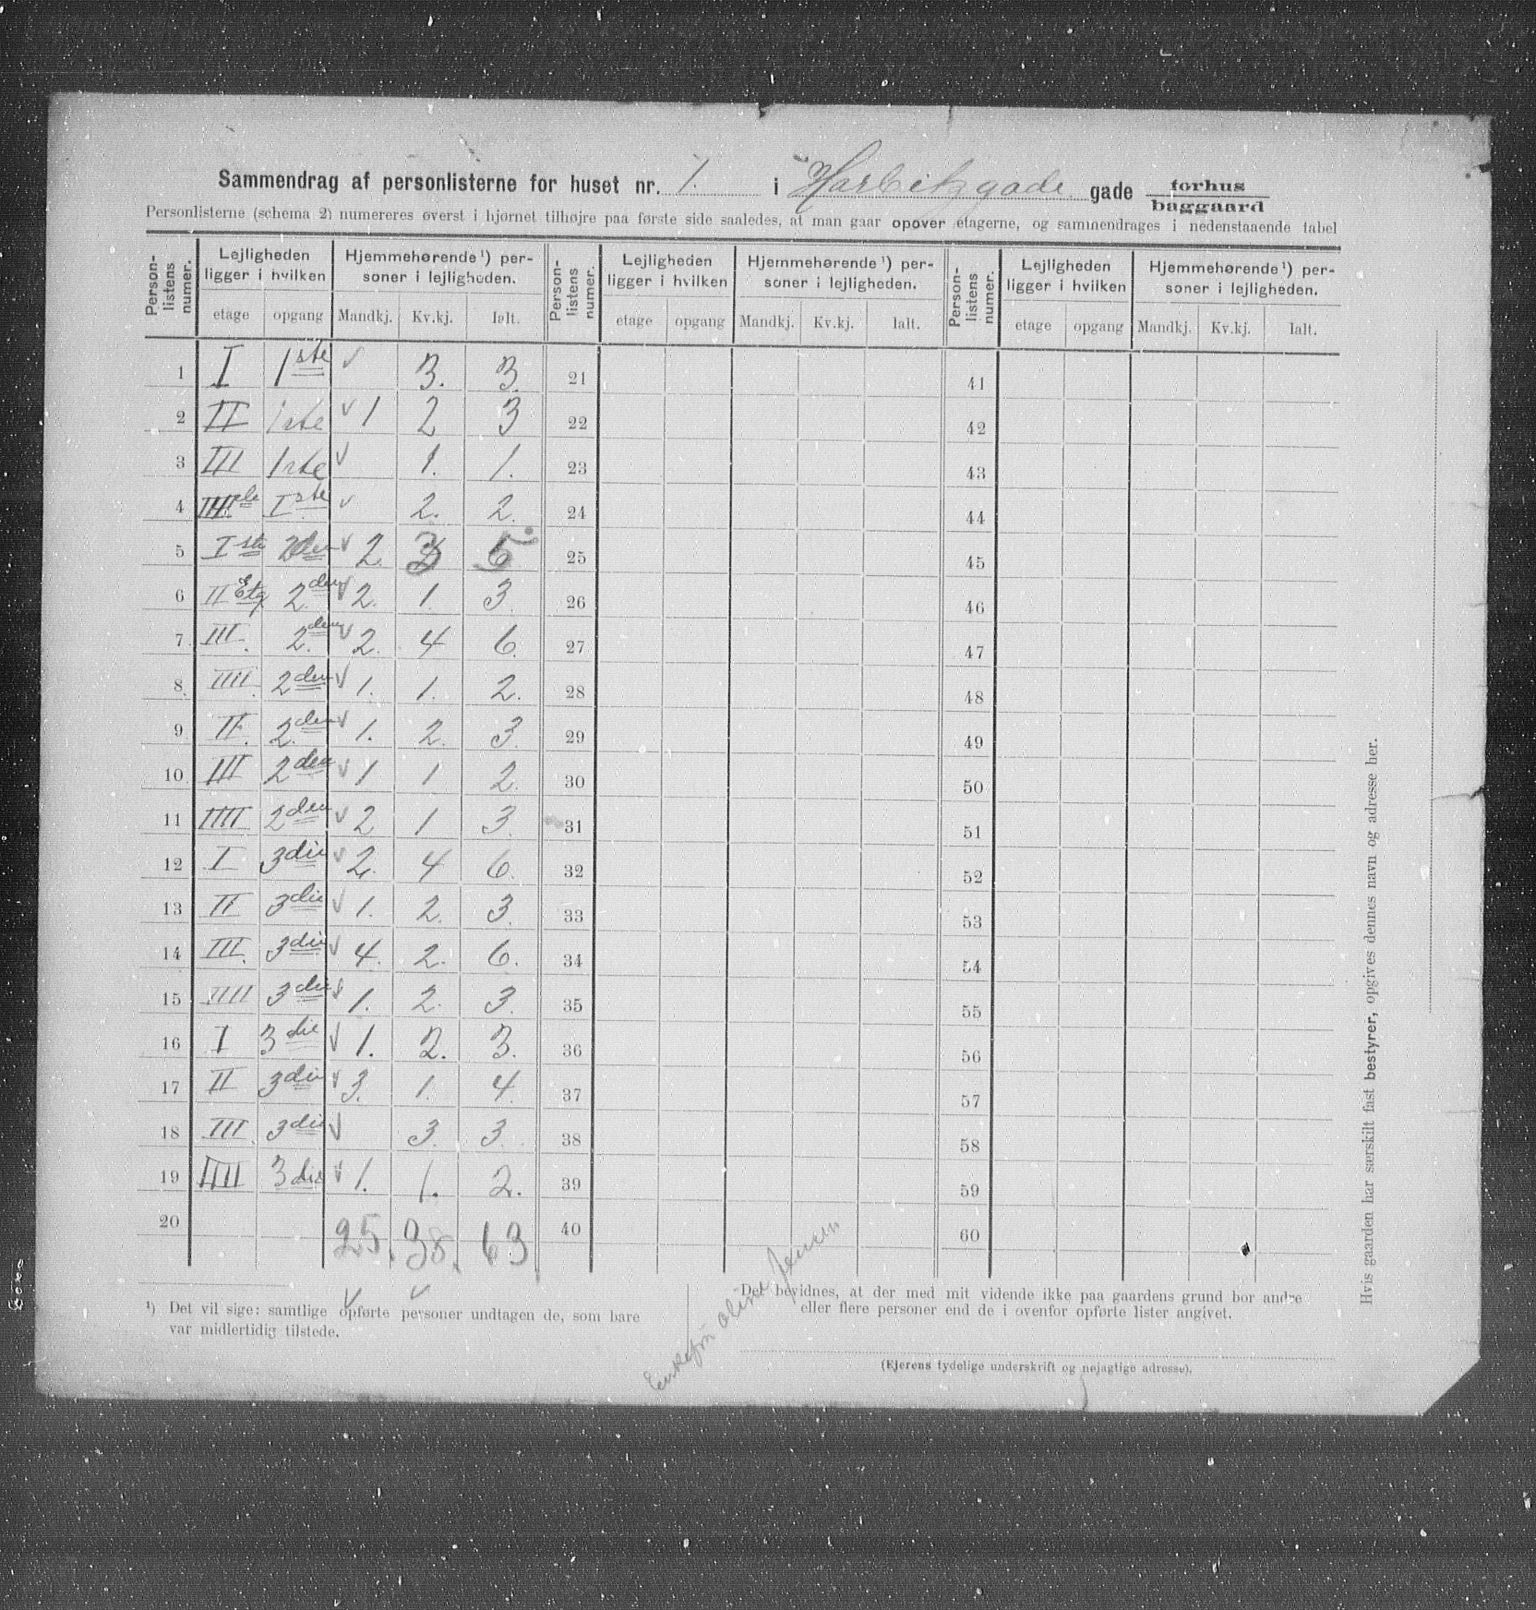 Sammendrag af personlisterne for huset nr. 1. i Harbitzgade gade forhus baggaard
Personlisterne (schema 2) numereres øverst i hjørnet tilhøjre paa første side saaledes, at man gaar opover etagerne, og sammendrages i nedenstaaende tabel
Person-listens numer. Lejligheden ligger i hvilken Hjemmehørende ¹) personer i lejligheden. Person-listens numer. Lejligheden ligger i hvilken Hjemmehørende ¹) personer i lejligheden. Person-listens numer. Lejligheden ligger i hvilken Hjemmehørende ¹) personer i lejligheden.
etage opgang Mandkj. Kv.kj. Ialt. etage opgang Mandkj. Kv.kj. Ialt. etage opgang Mandkj. Kv.kj. Ialt.
1 I 1ste 3. 3. 21 41
2 II 1ste 1 2 3 22 42
3 III 1ste 1. 1. 23 43
4 IIII 1ste 2. 2. 24 44
5 Iste 2den 2. 3 5 25 45
6 II Etg 2den 2. 1. 3. 26 46
7 III. 2den 2. 4 6. 27 47
8. IIII. 2den 1. 1. 2. 28 48
9 II. 2den 1. 2. 3. 29 49
10 III 2den 1 1 2. 30 50
11 IIII 2den 2 1 3. 31 51
12 I 3die 2. 4 6. 32 52
13 II 3die 1. 2. 3. 33 53
14 III. 3die 4. 2. 6. 34 54
15 IIII 3die 1. 2. 3. 35 55
16 I 3die 1. 2. 3. 36 56
17 II 3die 3. 1. 4. 37 57
18 III. 3die 3 3. 38 58
19 IIII 3die 1. 1. 2. 39 59
20 25. 38. 63 40 60
¹) Det vil sige: samtlige opførte personer undtagen de, som bare
var midlertidig tilstede.
Det bevidnes, at der med mit vidende ikke paa gaardens grund bor andre
eller flere personer end de i ovenfor opførte lister angivet.
Enkefru Oline Jensen
(Ejerens tydelige underskrift og nøjagtige adresse).
Hvis gaarden har særskilt fast bestyrer, opgives dennes navn og adresse her.